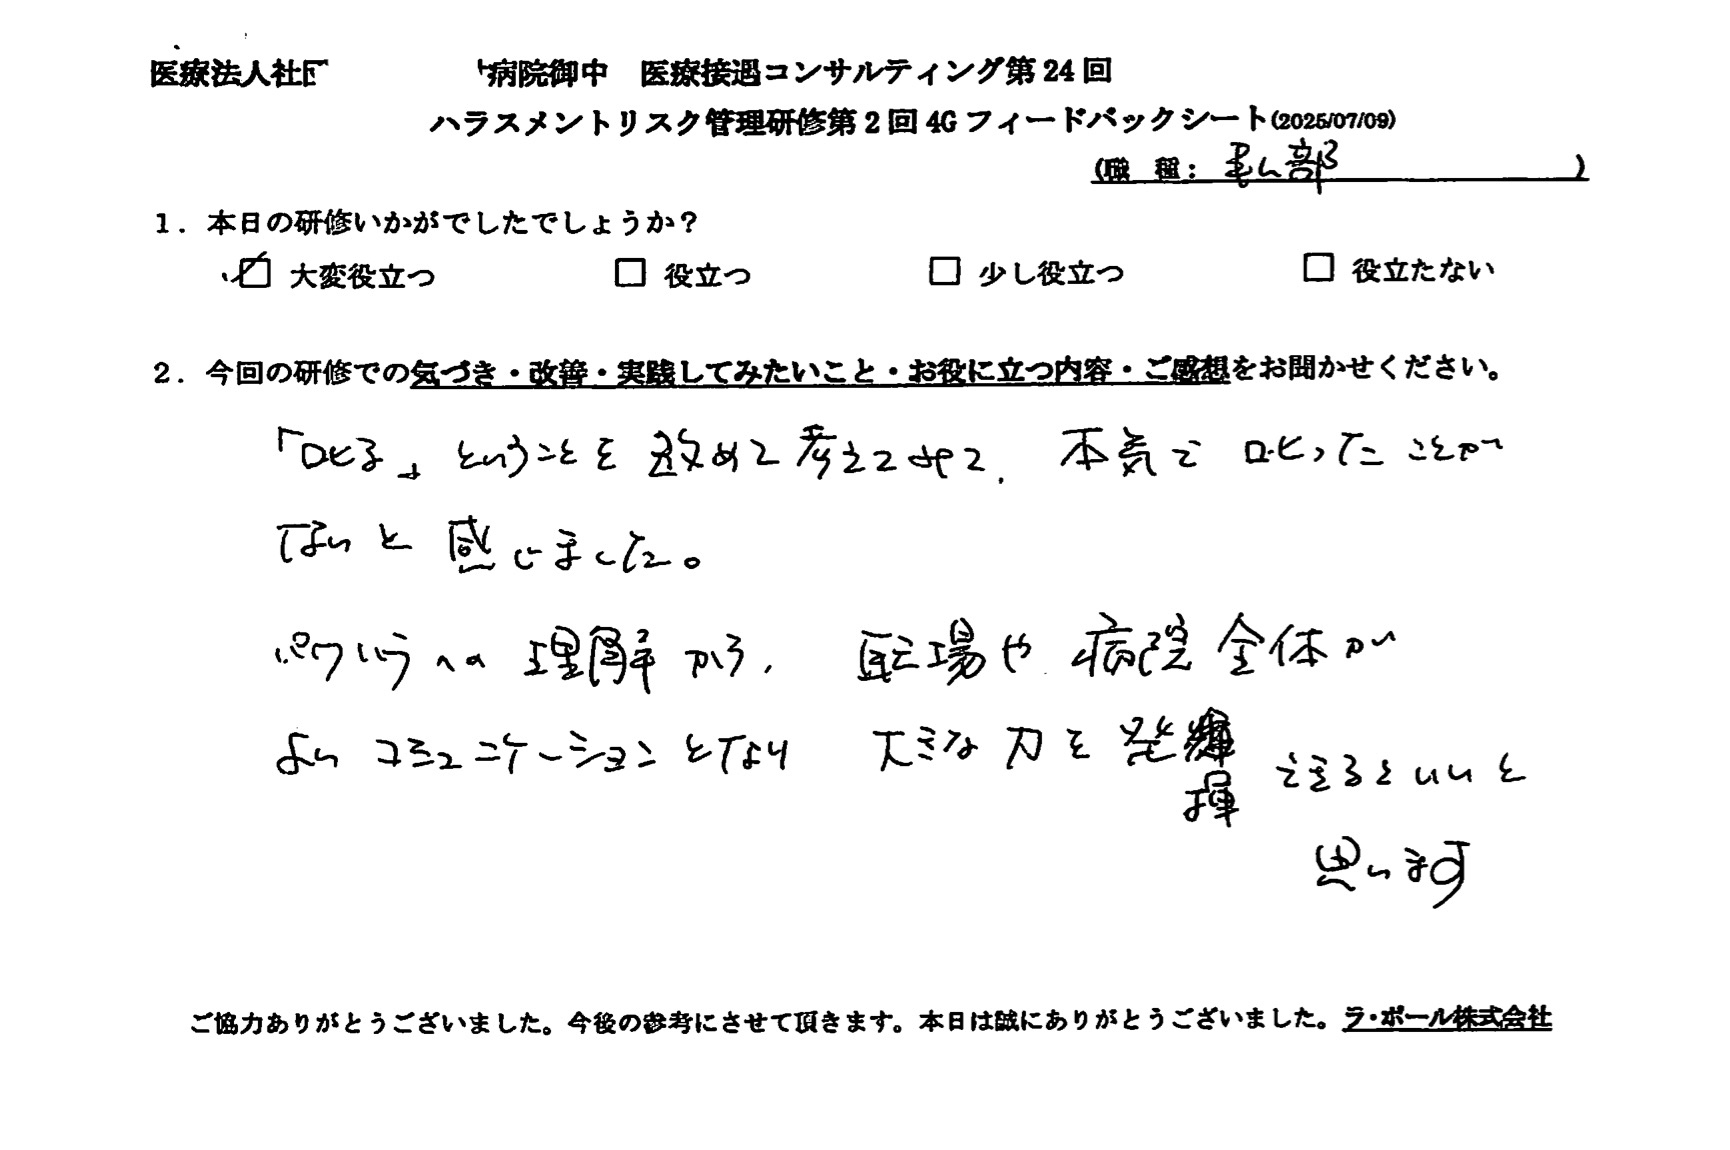 医療法人社団 病院御中 医療接遇コンサルティング第24回
ハラスメントリスク管理研修第2回4Gフィードバックシート(2025/07/09)
(職 種: 部 )
1. 本日の研修いかがでしたでしょうか?
☑ 大変役立つ □ 役立つ □ 少し役立つ □ 役立たない
2. 今回の研修での気づき・改善・実践してみたいこと・お役に立つ内容・ご感想をお聞かせください。
「叱る」ということを改めて考えてみて、本気で叱ったことが
ないと感じました。
パワハラへの理解から、職場や病院全体が
よいコミュニケーションとなり 大きな力を発揮できるといいと
思います
ご協力ありがとうございました。今後の参考にさせて頂きます。本日は誠にありがとうございました。ラ・ポール株式会社